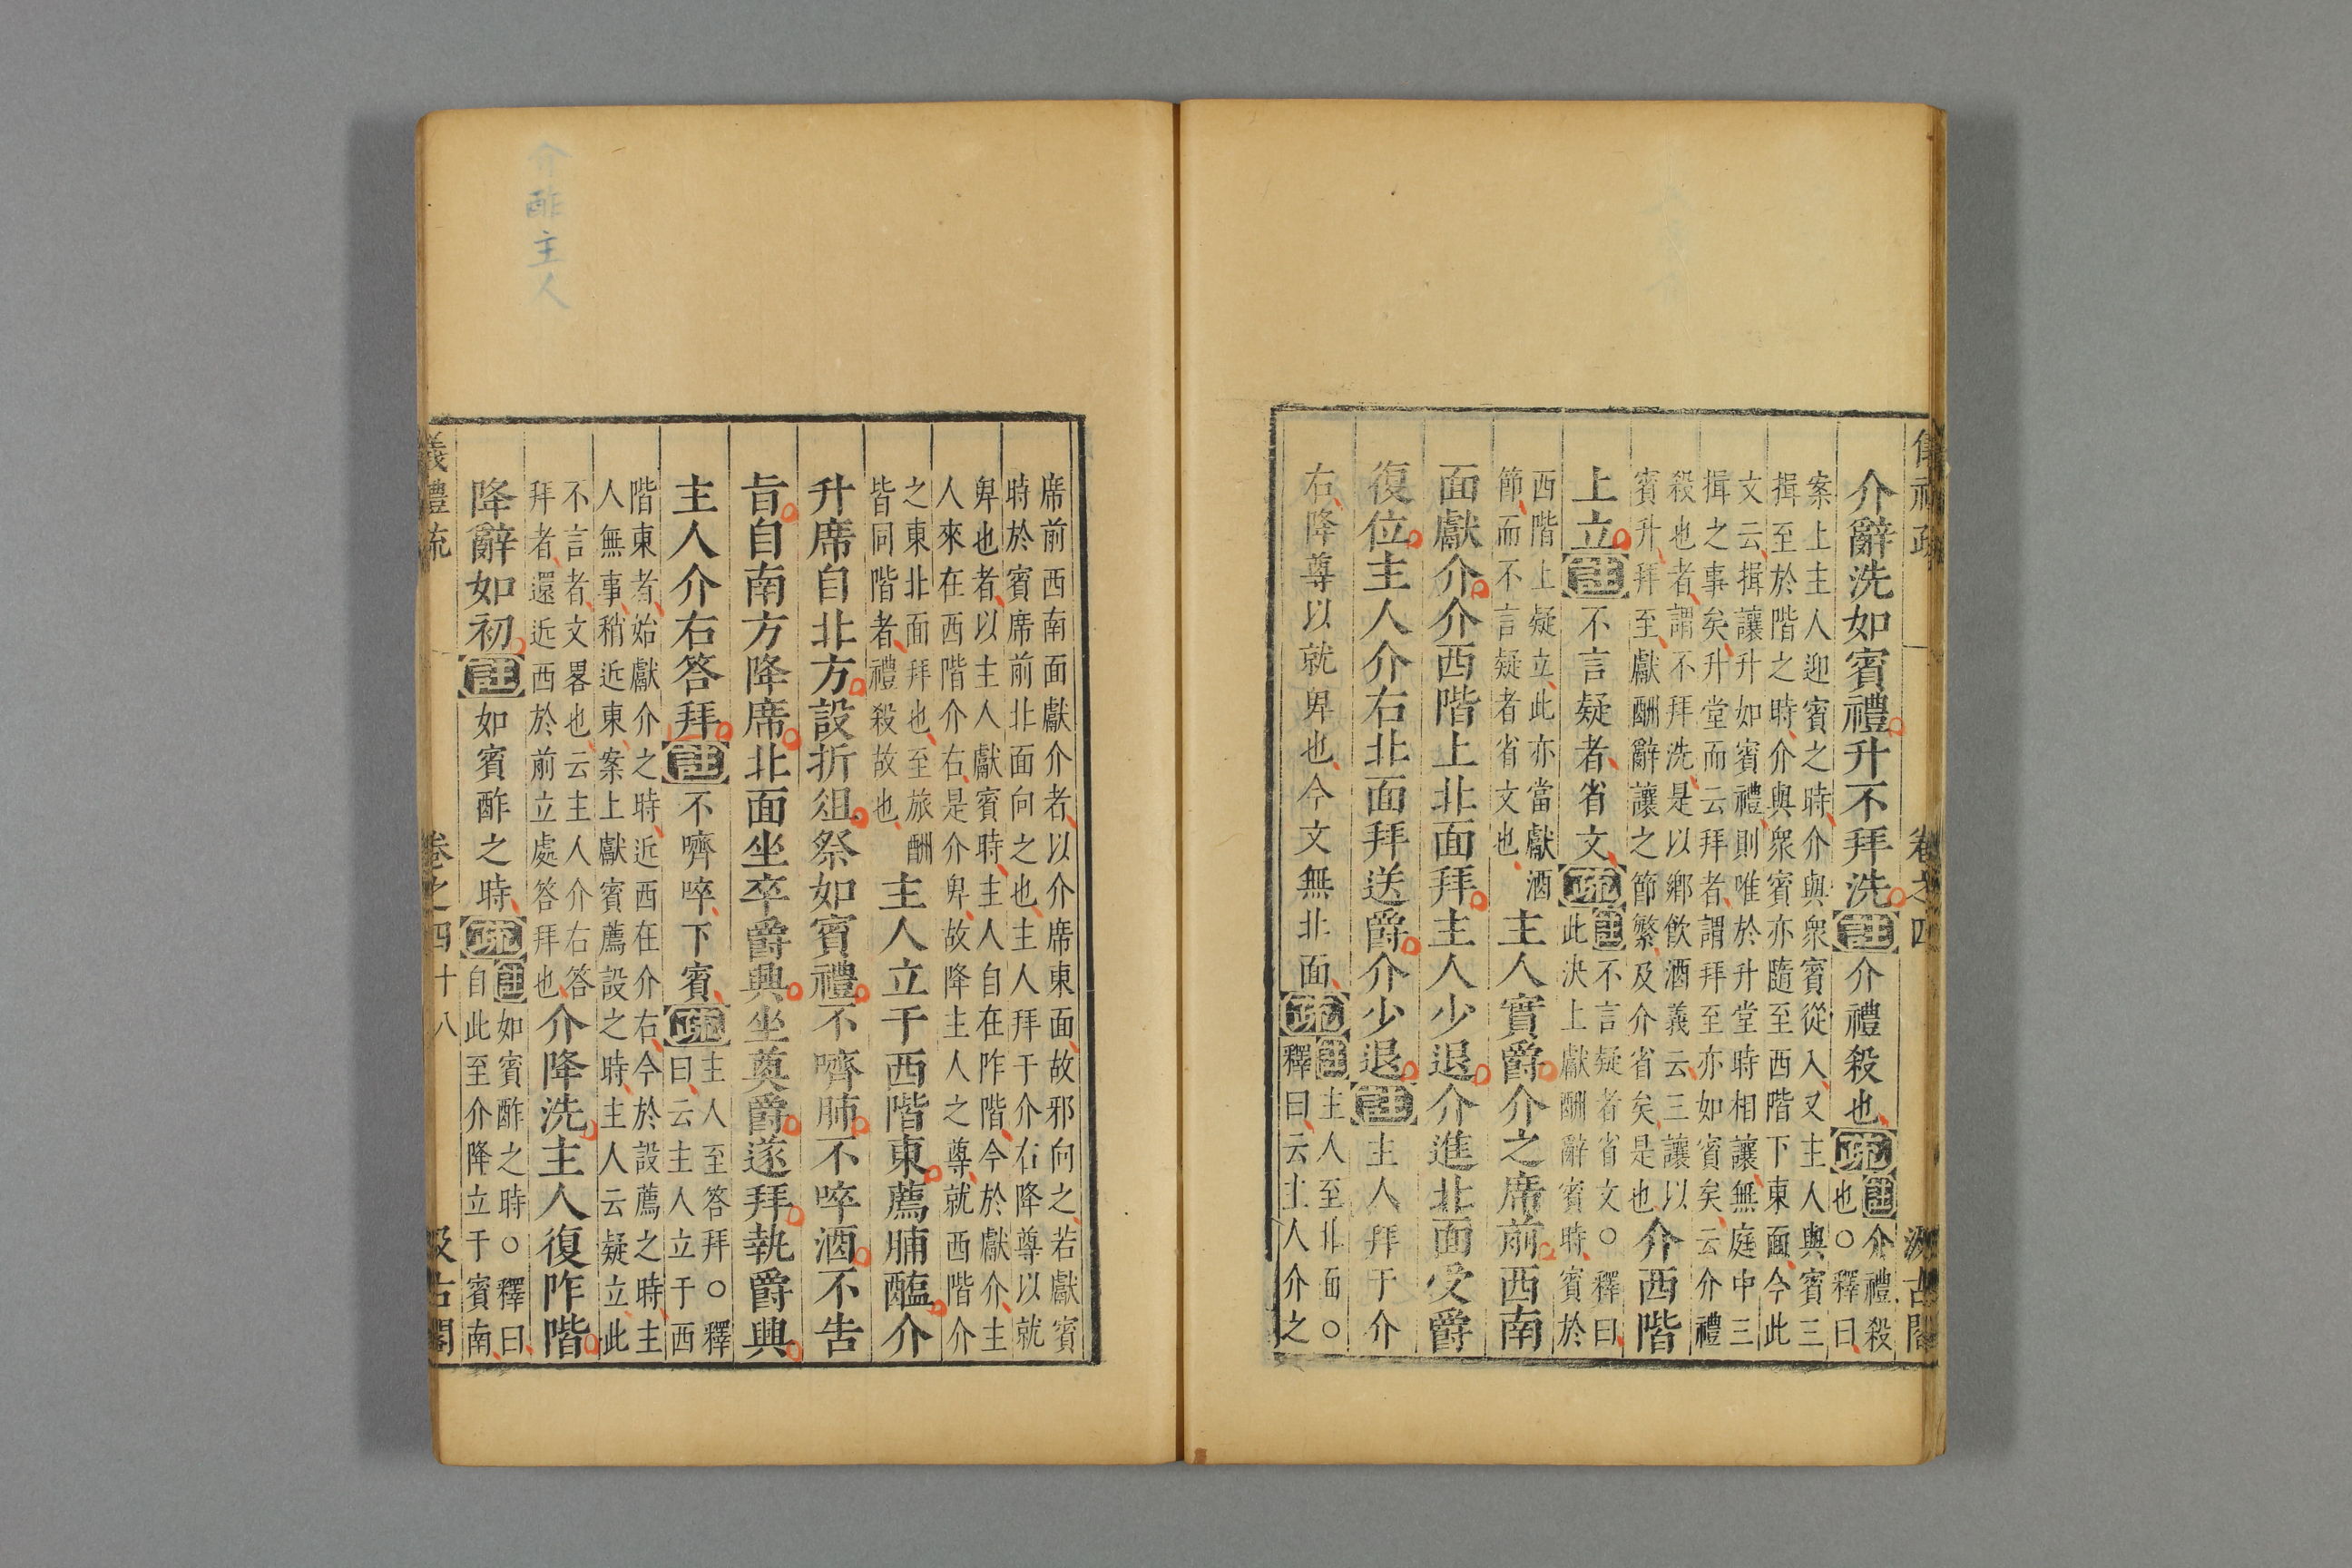 介辭洗如賓禮升不拜洗註介禮殺也疏註介禮殺也○釋曰
案上主人迎賓之時介與衆賓從入又主人與賓三
揖至於階之時介與衆賓亦隨至西階下東面今此
文云揖讓升如賓禮則唯於升堂時相讓無庭中三
揖之事矣升堂而云拜者謂拜至亦如賓矣云介禮
殺也者謂不拜洗是以鄉飲酒義云三讓以
賓升拜至獻酬辭讓之節繁及介省矣是也介西階
上立註不言疑者省文疏註不言疑者省文○釋曰此決上獻酬辭賓時賓於
西階上疑立此亦當獻酒
節而不言疑者省文也主人實爵介之席前西南
面獻介介西階上北面拜主人少退介進北面受爵
復位主人介右北面拜送爵介少退註主人拜于介
右降尊以就卑也今文無北面疏註主人至北面○釋曰云主人介之
席前西南面獻介者以介席東面故邪向之若獻賓
時於賓席前北面向之也主人拜于介右降尊以就
卑也者以主人獻賓時主人自在阼階今於獻介主
人來在西階介右是介卑故降主人之尊就西階介
之東北面拜也至旅酬
皆同階者禮殺故也主人立于西階東薦脯醢介
升席自北方設折俎祭如賓禮不嚌肺不啐酒不告
旨自南方降席北面坐卒爵興坐奠爵遂拜執爵興
主人介右答拜註不嚌啐下賓疏主人至答拜○釋曰云主人立于西
階東者始獻介之時近西在介右今於設薦之時主
人無事稍近東案上獻賓薦設之時主人云疑立此
不言者文畧也云主人介右答
拜者還近西於前立處答拜也介降洗主人復阼階
降辭如初註如賓酢之時疏註如賓酢之時○釋曰自此至介降立于賓南
儀禮疏
卷之四十八
汲古閣
介酢主人